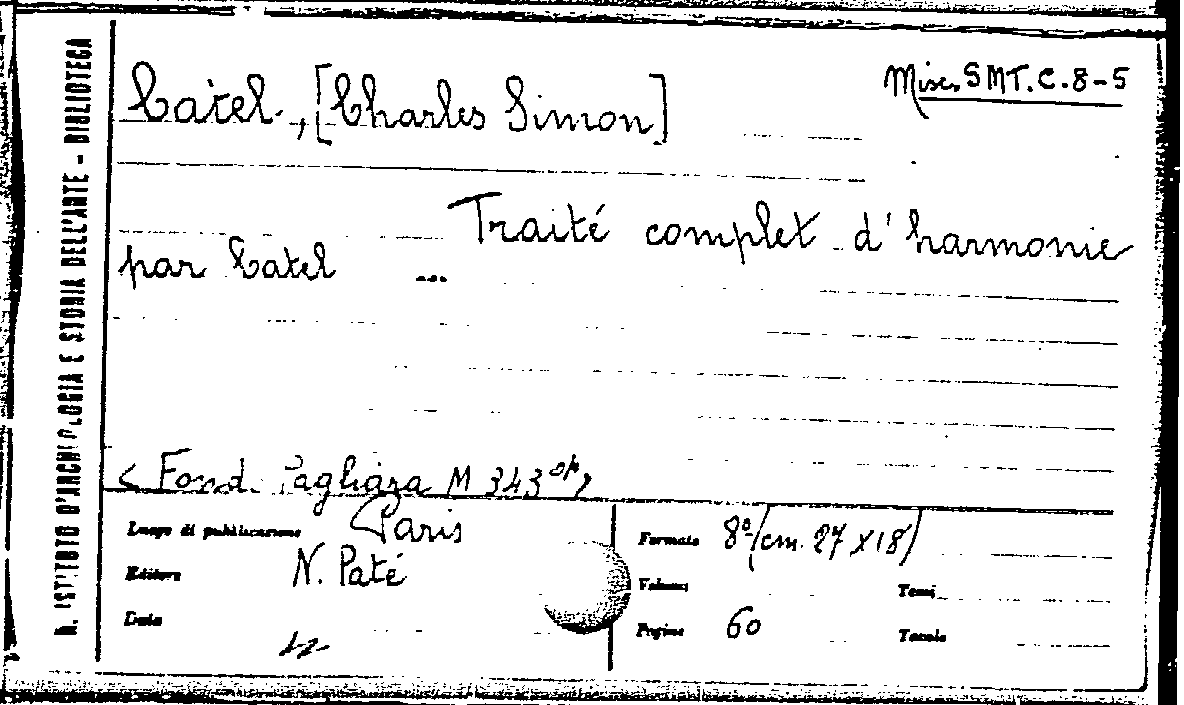 R. ISTITUTO D'ARCHEOLOGIA E STORIA DELL'ARTE - BIBLIOTECA
Misc. SMT. C. 8-5
Catel, [Charles Simon]
Traité complet d'harmonie
par Catel ...
< Fond. Pagliara M 343
Luogo di pubblicazione Paris
Editore N. Paté
Data
Formato 8º/cm. 27 x 18/
Volumi Tomi
Pagine 60 Tavole